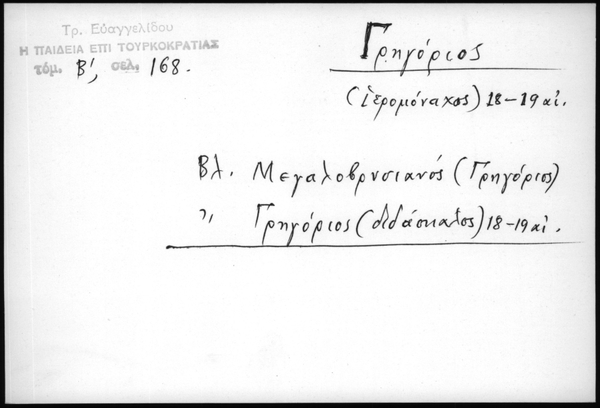 Τρ. Εὐαγγελίδου
Η ΠΑΙΔΕΙΑ ΕΠΙ ΤΟΥΡΚΟΚΡΑΤΙΑΣ
τόμ. Β', σελ. 168.
Γρηγόριος
(ἱερομόναχος) 18-19 αἰ.
Βλ. Μεγαλοβρυσιανός (Γρηγόριος)
" Γρηγόριος (διδάσκαλος) 18-19 αἰ.